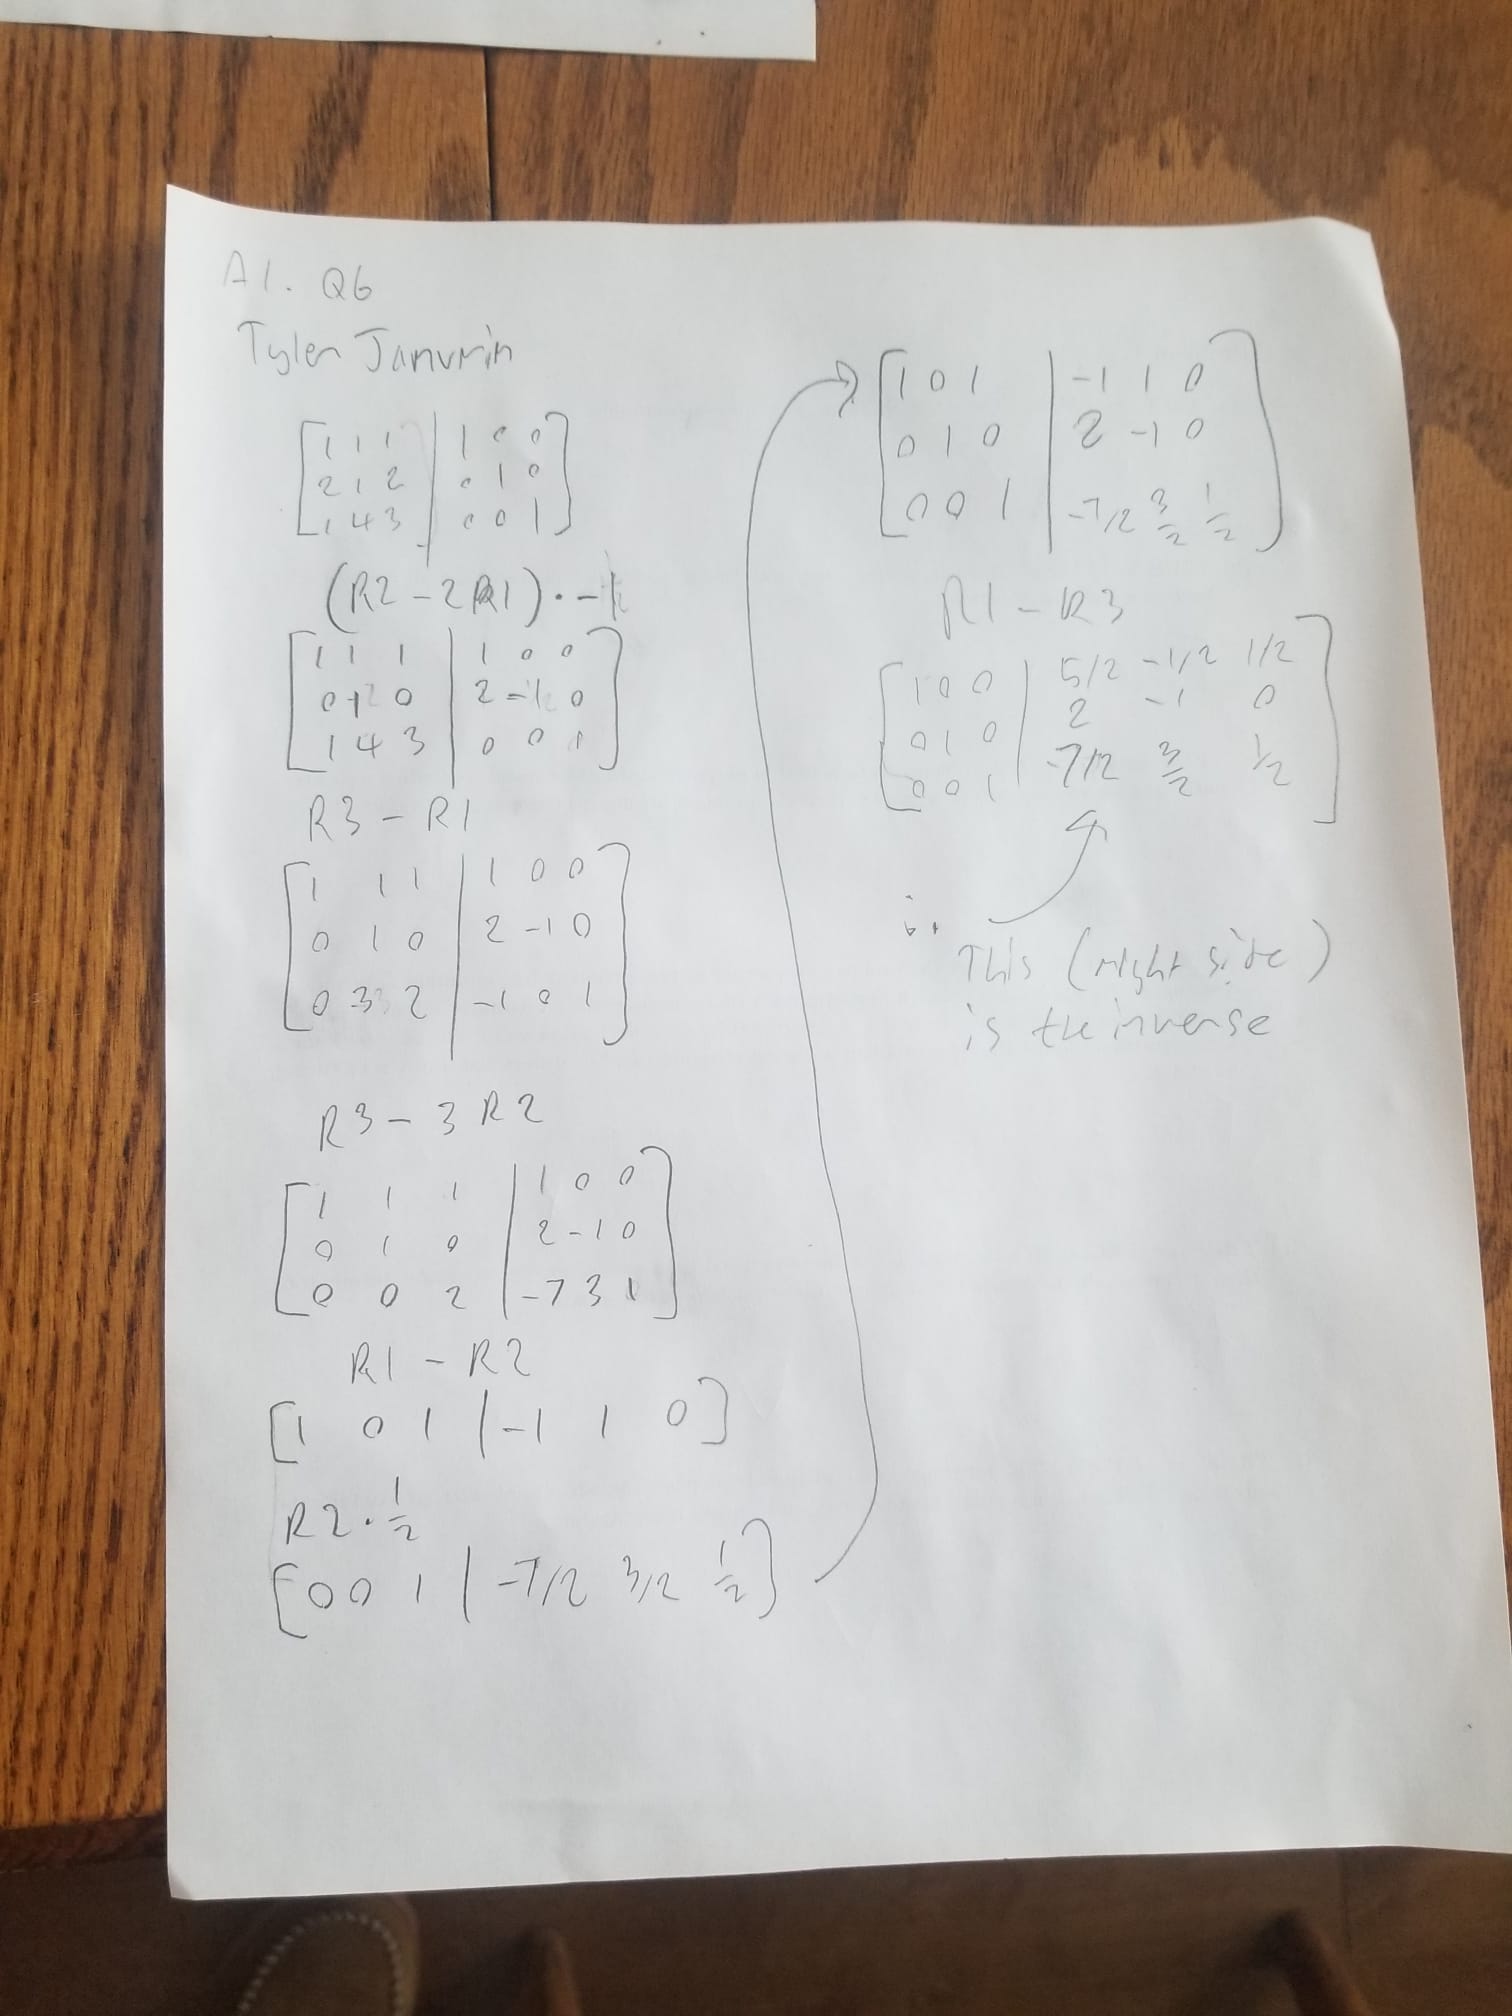 A1. Q6
Tyler Janurin
[1 1 1 | 1 0 0]
[2 1 2 | 0 1 0]
[1 4 3 | 0 0 1]
(R2 - 2R1) · -1
[1 1 1 | 1 0 0]
[0 1 0 | 2 -1 0]
[1 4 3 | 0 0 1]
R3 - R1
[1 1 1 | 1 0 0]
[0 1 0 | 2 -1 0]
[0 3 2 | -1 0 1]
R3 - 3R2
[1 1 1 | 1 0 0]
[0 1 0 | 2 -1 0]
[0 0 2 | -7 3 1]
R1 - R2
[1 0 1 | -1 1 0]
R2 · 1/2
[0 0 1 | -7/2 3/2 1/2]
[1 0 1 | -1 1 0]
[0 1 0 | 2 -1 0]
[0 0 1 | -7/2 3/2 1/2]
R1 - R3
[1 0 0 | 5/2 -1/2 1/2]
[0 1 0 | 2 -1 0]
[0 0 1 | -7/2 3/2 1/2]
∴
This (right side)
is the inverse